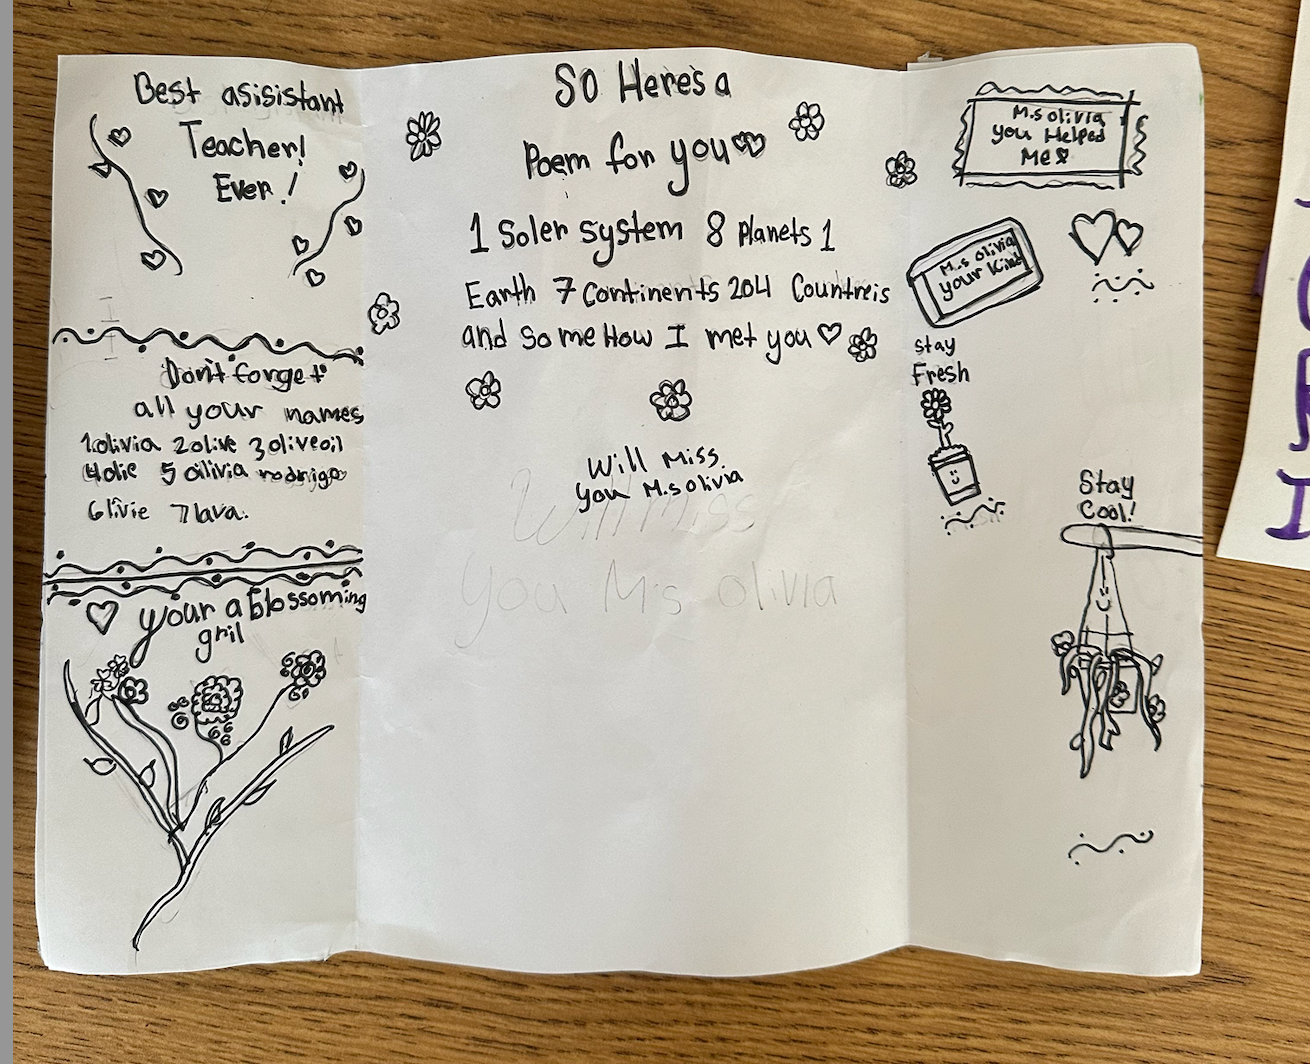 Best asisistant
Teacher!
Ever!
Don't forget
all your names
1olivia 2olive 3oliveoil
4olie 5 olivia rodrigo
6livie 7lava.
your a blossoming
gril
So Here's a
Poem for you
1 Soler system 8 Planets 1
Earth 7 Continents 204 Countreis
and Somehow I met you
Will Miss
you M.s olivia
Will miss
you M's olivia
M.s olivia
you Helped
Me
M.s olivia
your Kind
Stay
Fresh
Stay
Cool!